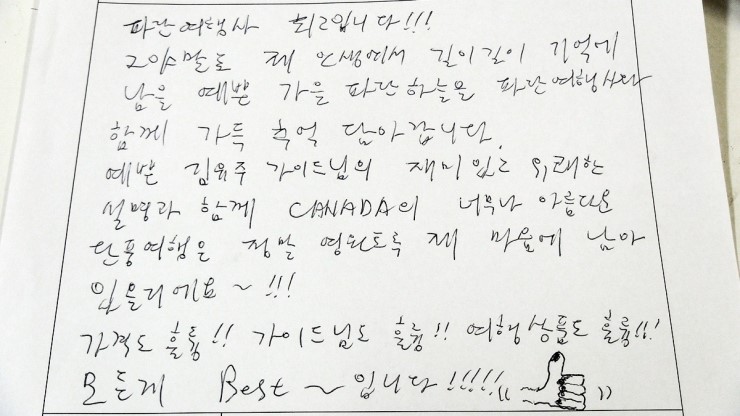 파란여행사 최고입니다!!!
그야말로 제 인생에서 길이길이 기억에
남을 예쁜 가을 파란하늘을 파란여행사와
함께 가득 추억 담아갑니다.
예쁜 김유주 가이드님의 재미있고 유쾌한
설명과 함께 CANADA의 너무나 아름다운
단풍여행은 정말 영원토록 제 마음에 남아
있을거에요~!!!
가격도 훌륭!! 가이드님도 훌륭!! 여행상품도 훌륭!!!
모든게 Best ~입니다!!!!!